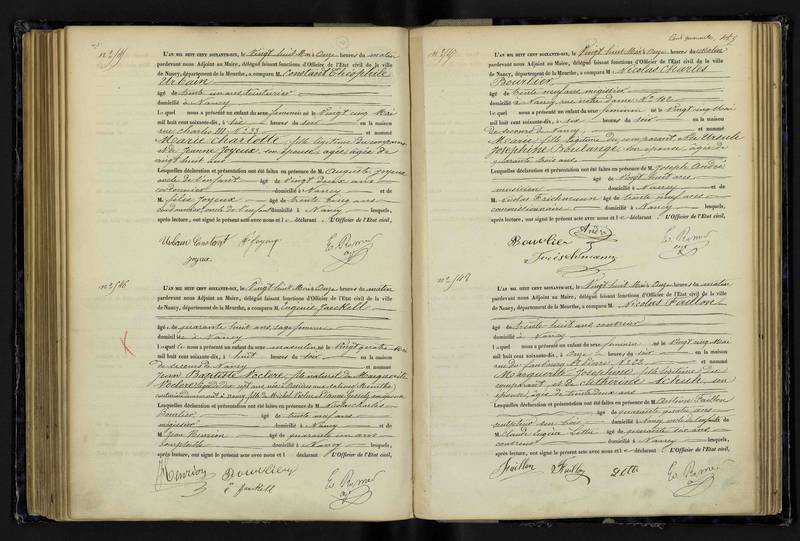 L'AN MIL HUIT CENT SOIXANTE-DIX, le Vingt huit Mai à Onze heures du matin
pardevant nous Adjoint au Maire, délégué faisant fonctions d'Officier de l'État civil de la ville
de Nancy, département de la Meurthe, a comparu M. Constant Théophile
Urbain
âgé de trente un ans, teinturier
domicilié à Nancy
lequel nous a présenté un enfant du sexe féminin né le Vingt cinq Mai
mil huit cent soixante-dix, à six heures du soir en la maison
rue Charles III, N° 33 et nommé
Marie Charlotte, fille légitime du comparant
et de Joyeux, son épouse, âgée de
vingt huit ans
Lesquelles déclaration et présentation ont été faites en présence de M. Auguste Joyeux
oncle de l'enfant âgé de Vingt deux ans
cordonnier domicilié à Nancy et de
M. Félix Joyeux âgé de trente cinq ans
cordonnier, oncle de l'enfant domicilié à Nancy lesquels,
après lecture, ont signé le présent acte avec nous et le déclarant. L'Officier de l'État civil,
Urbain Constant
Joyeux
N° 546
L'AN MIL HUIT CENT SOIXANTE-DIX, le Vingt huit Mai à Onze heures du matin
pardevant nous Adjoint au Maire, délégué faisant fonctions d'Officier de l'État civil de la ville
de Nancy, département de la Meurthe, a comparu M. Eugénie Jackell
âgée de quarante huit ans, sage femme
domiciliée à Nancy
laquelle nous a présenté un enfant du sexe masculin né le Vingt quatre Mai
mil huit cent soixante-dix, à huit heures du soir en la maison
de secours de Nancy et nommé
Jean Baptiste, fils naturel de Marguerite
Lesquelles déclaration et présentation ont été faites en présence de M. Nicolas Charles
Bourlier âgé de trente neuf ans
mégissier domicilié à Nancy et de
M. Jean Henrion âgé de quarante un ans
comptable domicilié à Nancy lesquels,
après lecture, ont signé le présent acte avec nous et la déclarante. L'Officier de l'État civil,
Henrion Bourlier
Jackell
N° 547
L'AN MIL HUIT CENT SOIXANTE-DIX, le Vingt huit Mai à Onze heures du matin
pardevant nous Adjoint au Maire, délégué faisant fonctions d'Officier de l'État civil de la ville
de Nancy, département de la Meurthe, a comparu M. Nicolas Charles
Bourlier
âgé de trente neuf ans mégissier
domicilié à Nancy, rue Notre Dame N° 112
lequel nous a présenté un enfant du sexe féminin né le Vingt cinq Mai
mil huit cent soixante-dix, à six heures du soir en la maison
de secours de Nancy et nommé
Marie, fille légitime du comparant et de Ursule
Joséphine Boulangé, son épouse, âgée de
quarante trois ans
Lesquelles déclaration et présentation ont été faites en présence de M. Joseph André
âgé de Vingt huit ans
musicien domicilié à Nancy et de
M. Nicolas Frischmann âgé de trente neuf ans
commissionnaire domicilié à Nancy lesquels,
après lecture, ont signé le présent acte avec nous et le déclarant. L'Officier de l'État civil,
André
Bourlier
Frischmann
N° 548
L'AN MIL HUIT CENT SOIXANTE-DIX, le Vingt huit Mai à Onze heures du matin
pardevant nous Adjoint au Maire, délégué faisant fonctions d'Officier de l'État civil de la ville
de Nancy, département de la Meurthe, a comparu M. Nicolas Faillon
âgé de trente huit ans couvreur
domicilié à Nancy
lequel nous a présenté un enfant du sexe féminin né le Vingt cinq Mai
mil huit cent soixante-dix, à Onze heures du soir en la maison
rue du faubourg St Pierre N° 22 et nommé
Marguerite Joséphine, fille légitime du
comparant et de Catherine Schuth, son
épouse, âgée de trente deux ans
Lesquelles déclaration et présentation ont été faites en présence de M. Faillon
âgé de quarante quatre ans
sculpteur sur bois domicilié à Nancy, oncle de l'enfant et de
M. Claude Eugène Lotte âgé de quarante six ans
couvreur domicilié à Nancy lesquels,
après lecture, ont signé le présent acte avec nous et le déclarant. L'Officier de l'État civil,
Faillon Faillon